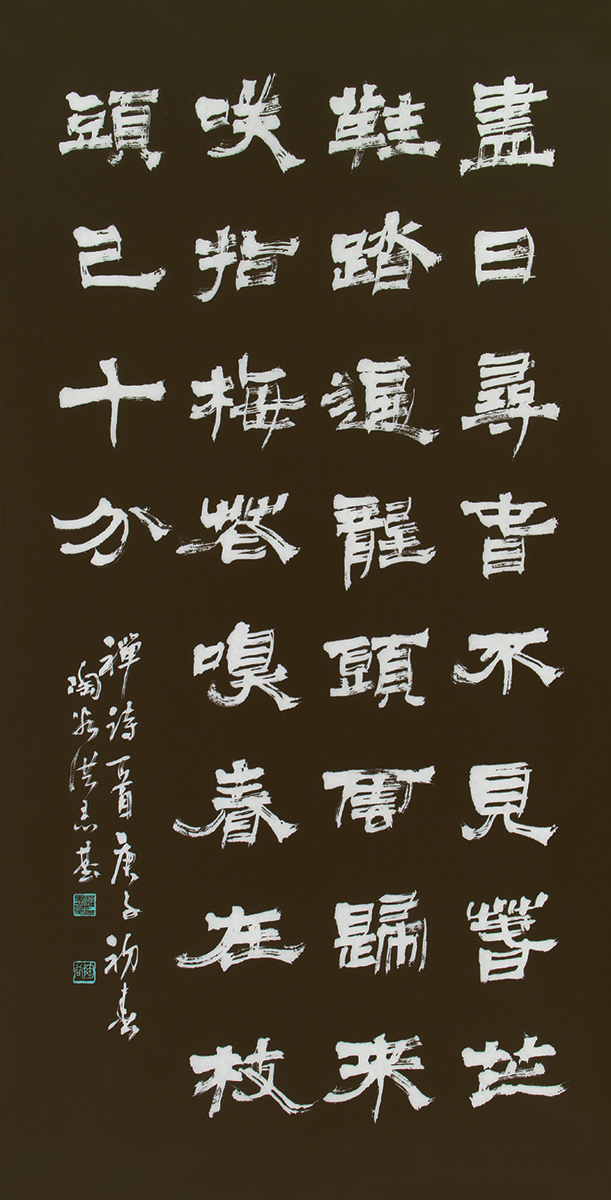 盡日尋春不見春芒
鞋踏遍龍頭雲歸來
咲指梅花嗅春在枝
頭已十分
禪詩一首庚子初春
陶洪志基